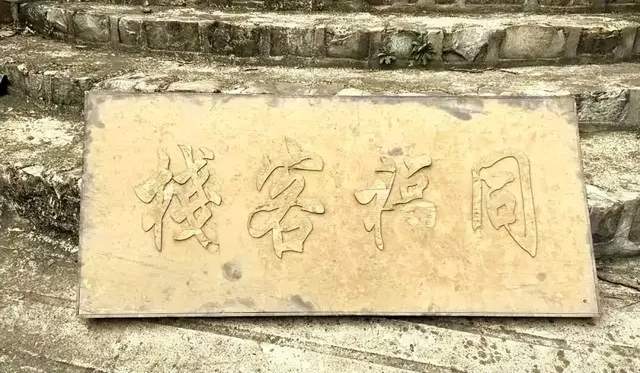 同福客棧